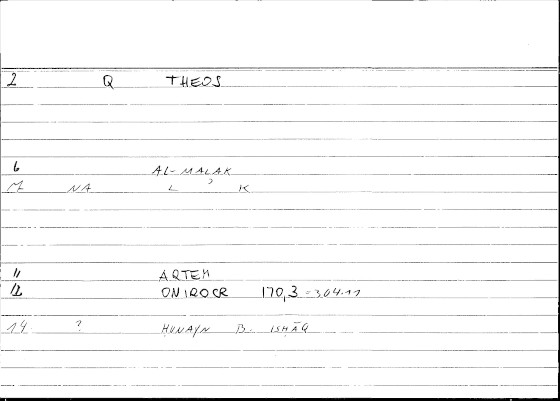 2 Q THEOS
6 AL-MALAK
NA L ʾ K
11 ARTEM
12 ONIROCR 170,3 = 364.11
14 ? ḤUNAYN B. ISḤĀQ